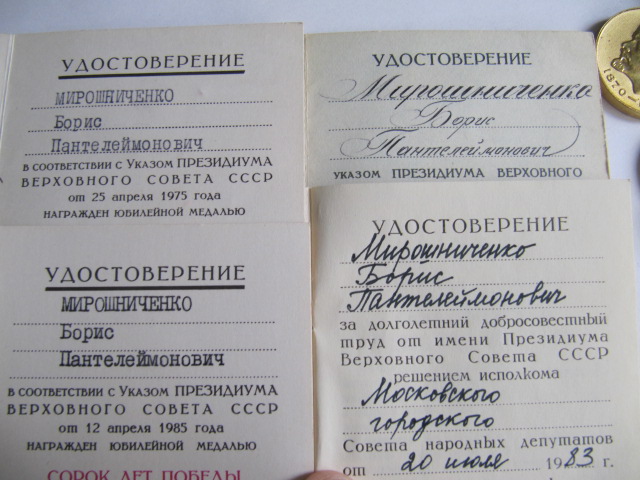 УДОСТОВЕРЕНИЕ
МИРОШНИЧЕНКО
Борис
Пантелеймонович
в соответствии с Указом ПРЕЗИДИУМА
ВЕРХОВНОГО СОВЕТА СССР
от 25 апреля 1975 года
НАГРАЖДЕН ЮБИЛЕЙНОЙ МЕДАЛЬЮ
УДОСТОВЕРЕНИЕ
Мирошниченко
Борис
Пантелеймонович
УКАЗОМ ПРЕЗИДИУМА ВЕРХОВНОГО
1870
УДОСТОВЕРЕНИЕ
МИРОШНИЧЕНКО
Борис
Пантелеймонович
в соответствии с Указом ПРЕЗИДИУМА
ВЕРХОВНОГО СОВЕТА СССР
от 12 апреля 1985 года
НАГРАЖДЕН ЮБИЛЕЙНОЙ МЕДАЛЬЮ
СОРОК ЛЕТ ПОБЕДЫ
УДОСТОВЕРЕНИЕ
Мирошниченко
Борис
Пантелеймонович
за долголетний добросовестный
труд от имени Президиума
Верховного Совета СССР
решением исполкома
Московского
городского
Совета народных депутатов
от 20 июля 1983 г.